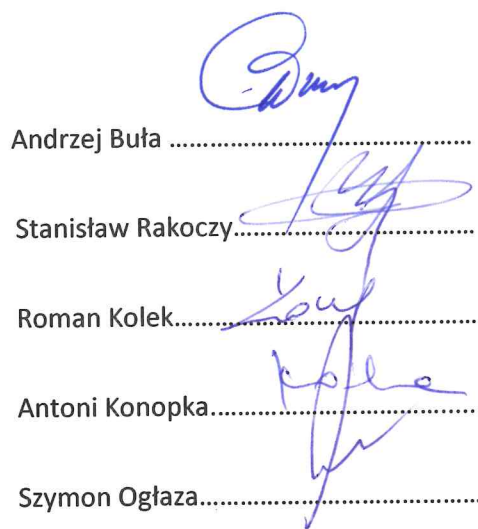 Andrzej Buła ........................................
Stanisław Rakoczy................................
Roman Kolek........................................
Antoni Konopka...................................
Szymon Ogłaza.....................................